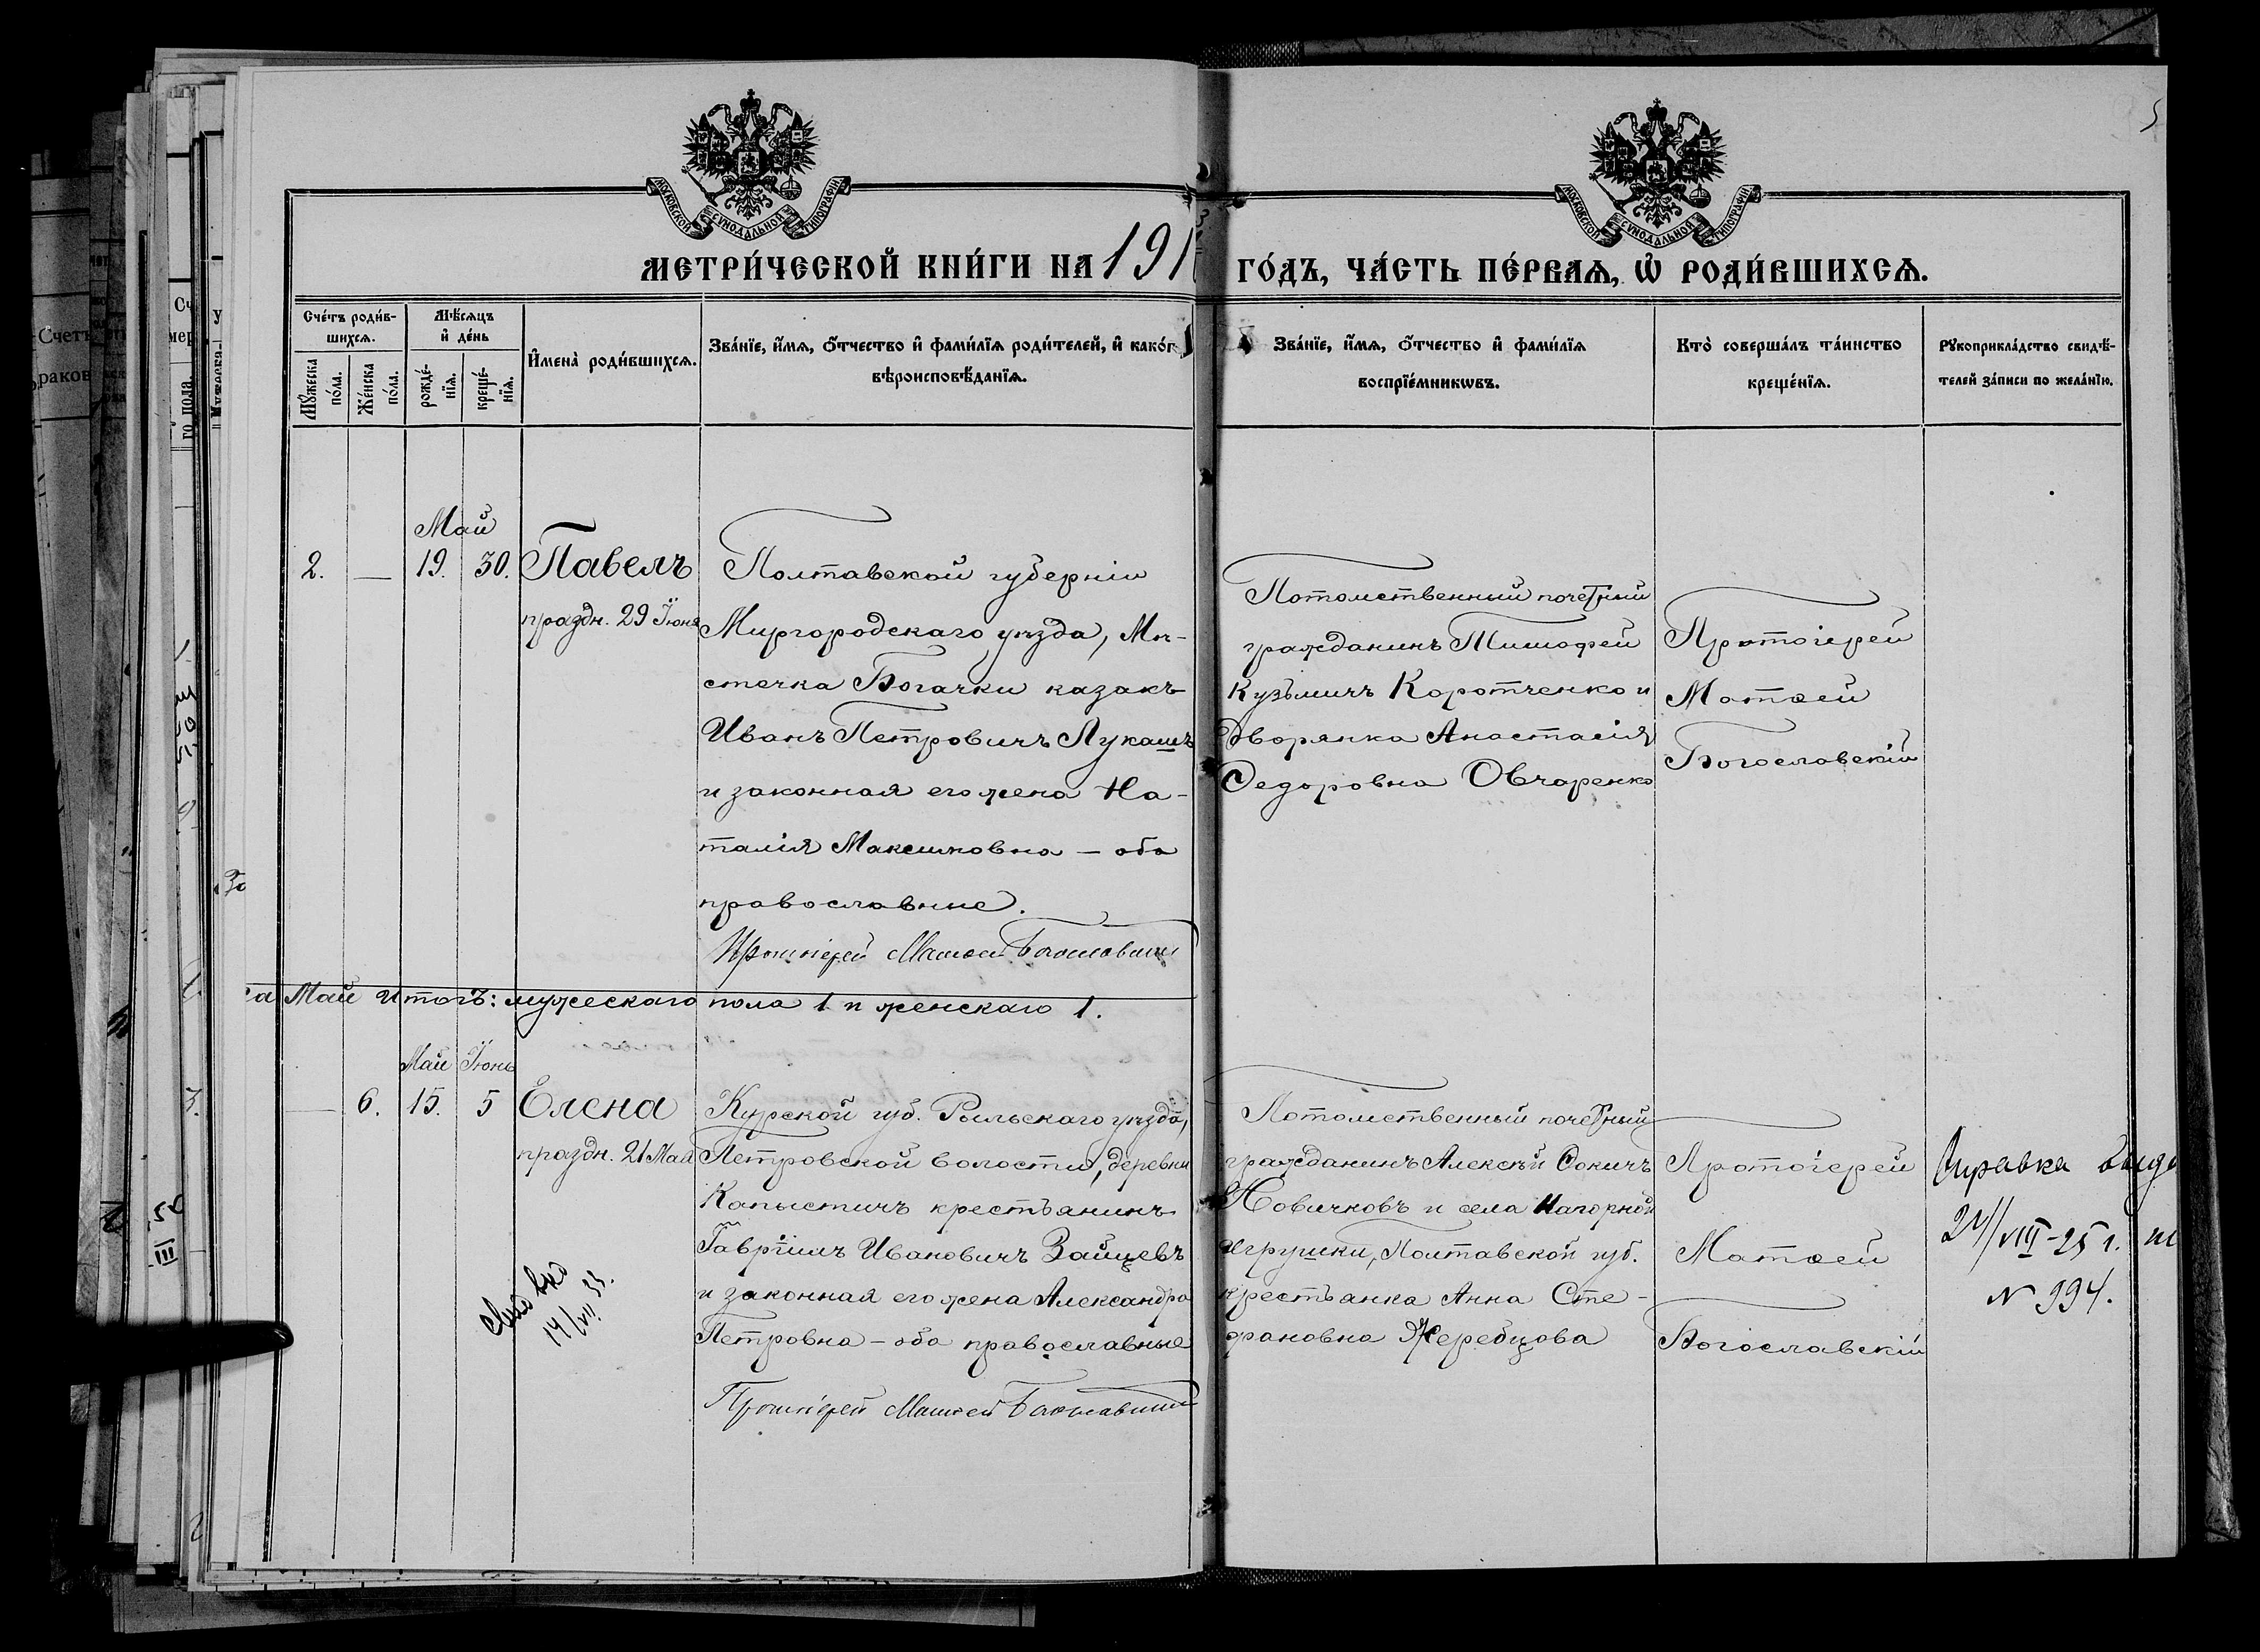 МОСКОВСКОЙ СѴНОДАЛЬНОЙ ТИПОГРАФІИ
МОСКОВСКОЙ СѴНОДАЛЬНОЙ ТИПОГРАФІИ
МЕТРИ́ЧЕСКОЙ КНИ́ГИ НА 191 ГО́ДЪ, ЧА́СТЬ ПЕ́РВАЯ, Ѡ҆ РОДИ́ВШИХСЯ.
Сче́тъ роди́в-
шихся.
Мѣ́сяцъ
и҆ де́нь
Мꙋ́жеска
по́ла.
Же́нска
по́ла.
рожде́-
нїя.
креще́-
нїя.
И҆мена̀ роди́вшихся.
Зва́нїе, и҆́мя, ѻ҆́тчество и҆ фами́лїя роди́телей, и҆ како́г
вѣроисповѣ́данїя.
Зва́нїе, и҆́мя, ѻ҆́тчество и҆ фами́лїя
воспрїе́мникѡвъ.
Кто̀ соверша́лъ та́инство
креще́нїя.
Рꙋкоприкла́дство свидѣ́-
телей за́писи по жела́нїю.
Май
2. — 19. 30. Павелъ
праздн. 29 Іюня
Полтавской губерніи
Миргородскаго уѣзда, Мѣ-
стечка Богачки казакъ
Иванъ Петровичъ Лукашъ
и законная его жена На-
талія Максимовна — оба
православные.
Протоіерей Матѳей Богословскій
Потомственный почетный
гражданинъ Тимофей
Кузьмичъ Коротченко и
дворянка Анастасія
Федоровна Овчаренко
Протоіерей
Матѳей
Богословскій
са Май итогъ: мужескаго пола 1 и женскаго 1.
Май Іюнь
— 6. 15. 5 Елена
праздн. 21 Мая
Курской губ. Рыльскаго уѣзда,
Петровской волости, деревни
Капыстичъ крестьянинъ
Гавріилъ Ивановичъ Зайцевъ
и законная его жена Александра
Петровна — оба православные
Протоіерей Матѳей Богословскій
14/VII 33.
Потомственный почетный
гражданинъ Алексѣй Фокичъ
Новичковъ и села Нагорной
Игрушки, Полтавской губ.
крестьянка Анна Сте-
фановна Жеребцова
Протоіерей
Матѳей
Богословскій
Справка выда
24/VIII-25 г.
N 994.